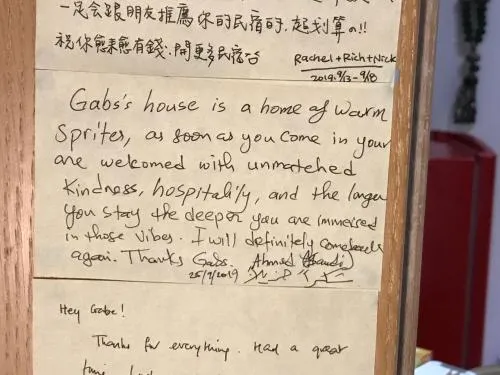 一定会跟朋友推薦你的民宿的,超划算の!!
祝你愈來愈有錢、開更多民宿
Rachel + Rich + Nick
2019. 9/13 - 9/18
Gabs's house is a home of warm
Sprites, as soon as you come in your
are welcomed with unmatched
Kindness, hospitality, and the longer
you stay the deeper you are immersed
in those vibes. I will definitely comeback
again. Thanks Gabs. Ahmed
25/9/2019
Hey Gabe!
Thanks for everything. Had a great
time